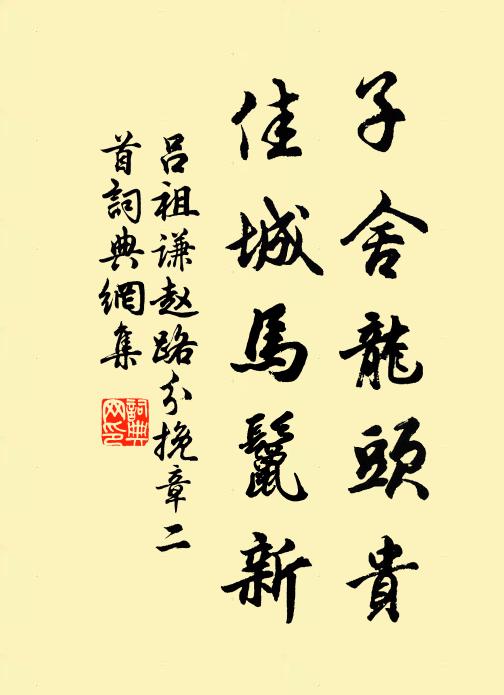 子舍龍頭貴
佳城馬鬛新
吕祖谦赵路分挽章二
首詞典網集
詞典
网印